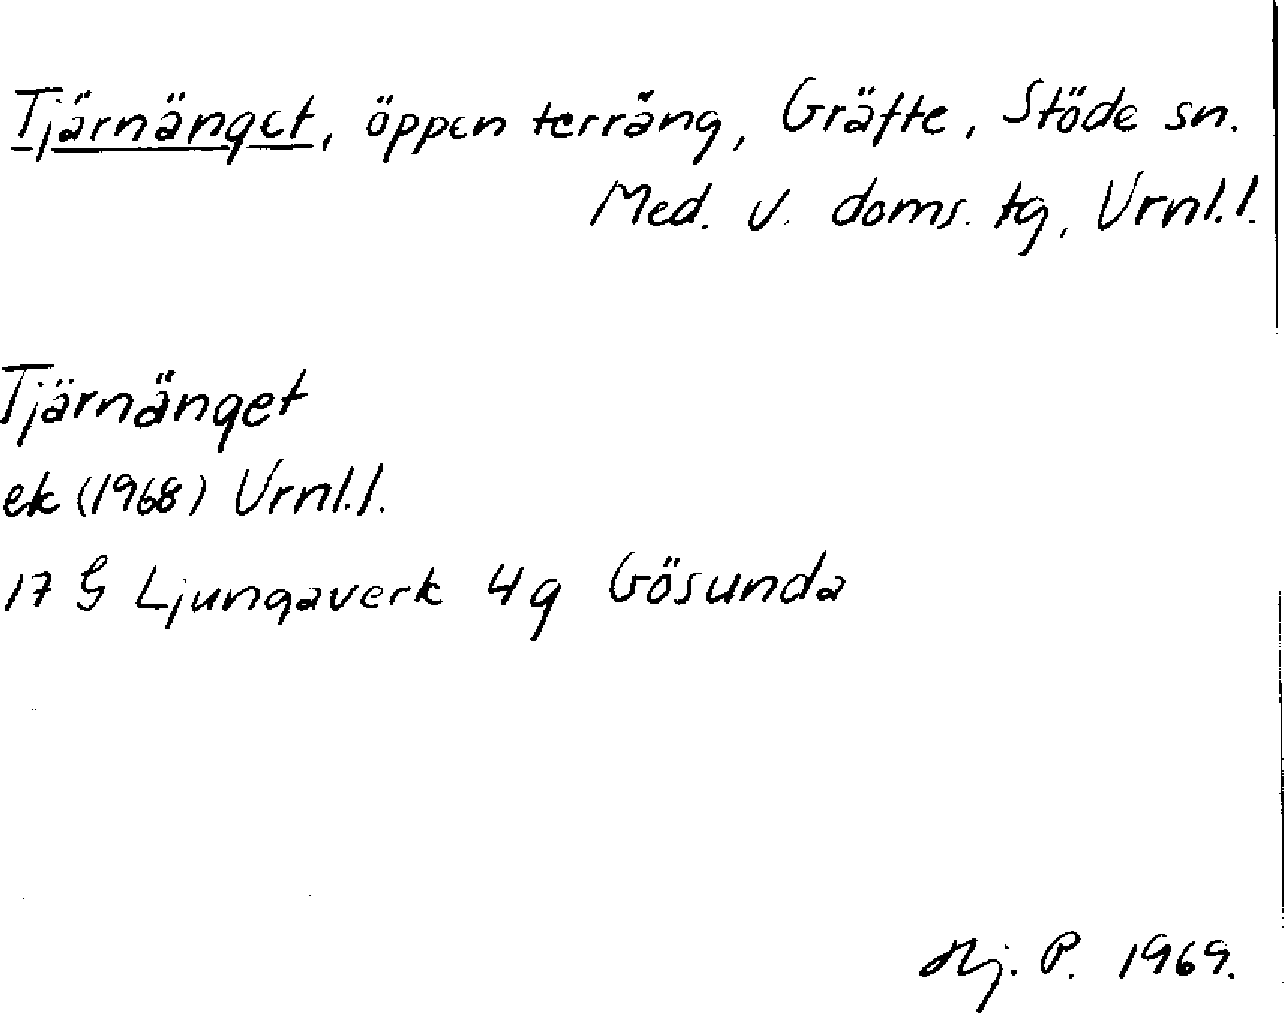 Tjärnänget, öppen terräng, Gräfte, Stöde sn.
Med. v. doms. tg, Vrnl.l.
Tjärnänget
ek (1968) Vrnl.l.
17 G Ljungaverk 4g Gösunda
Hj. P. 1969.